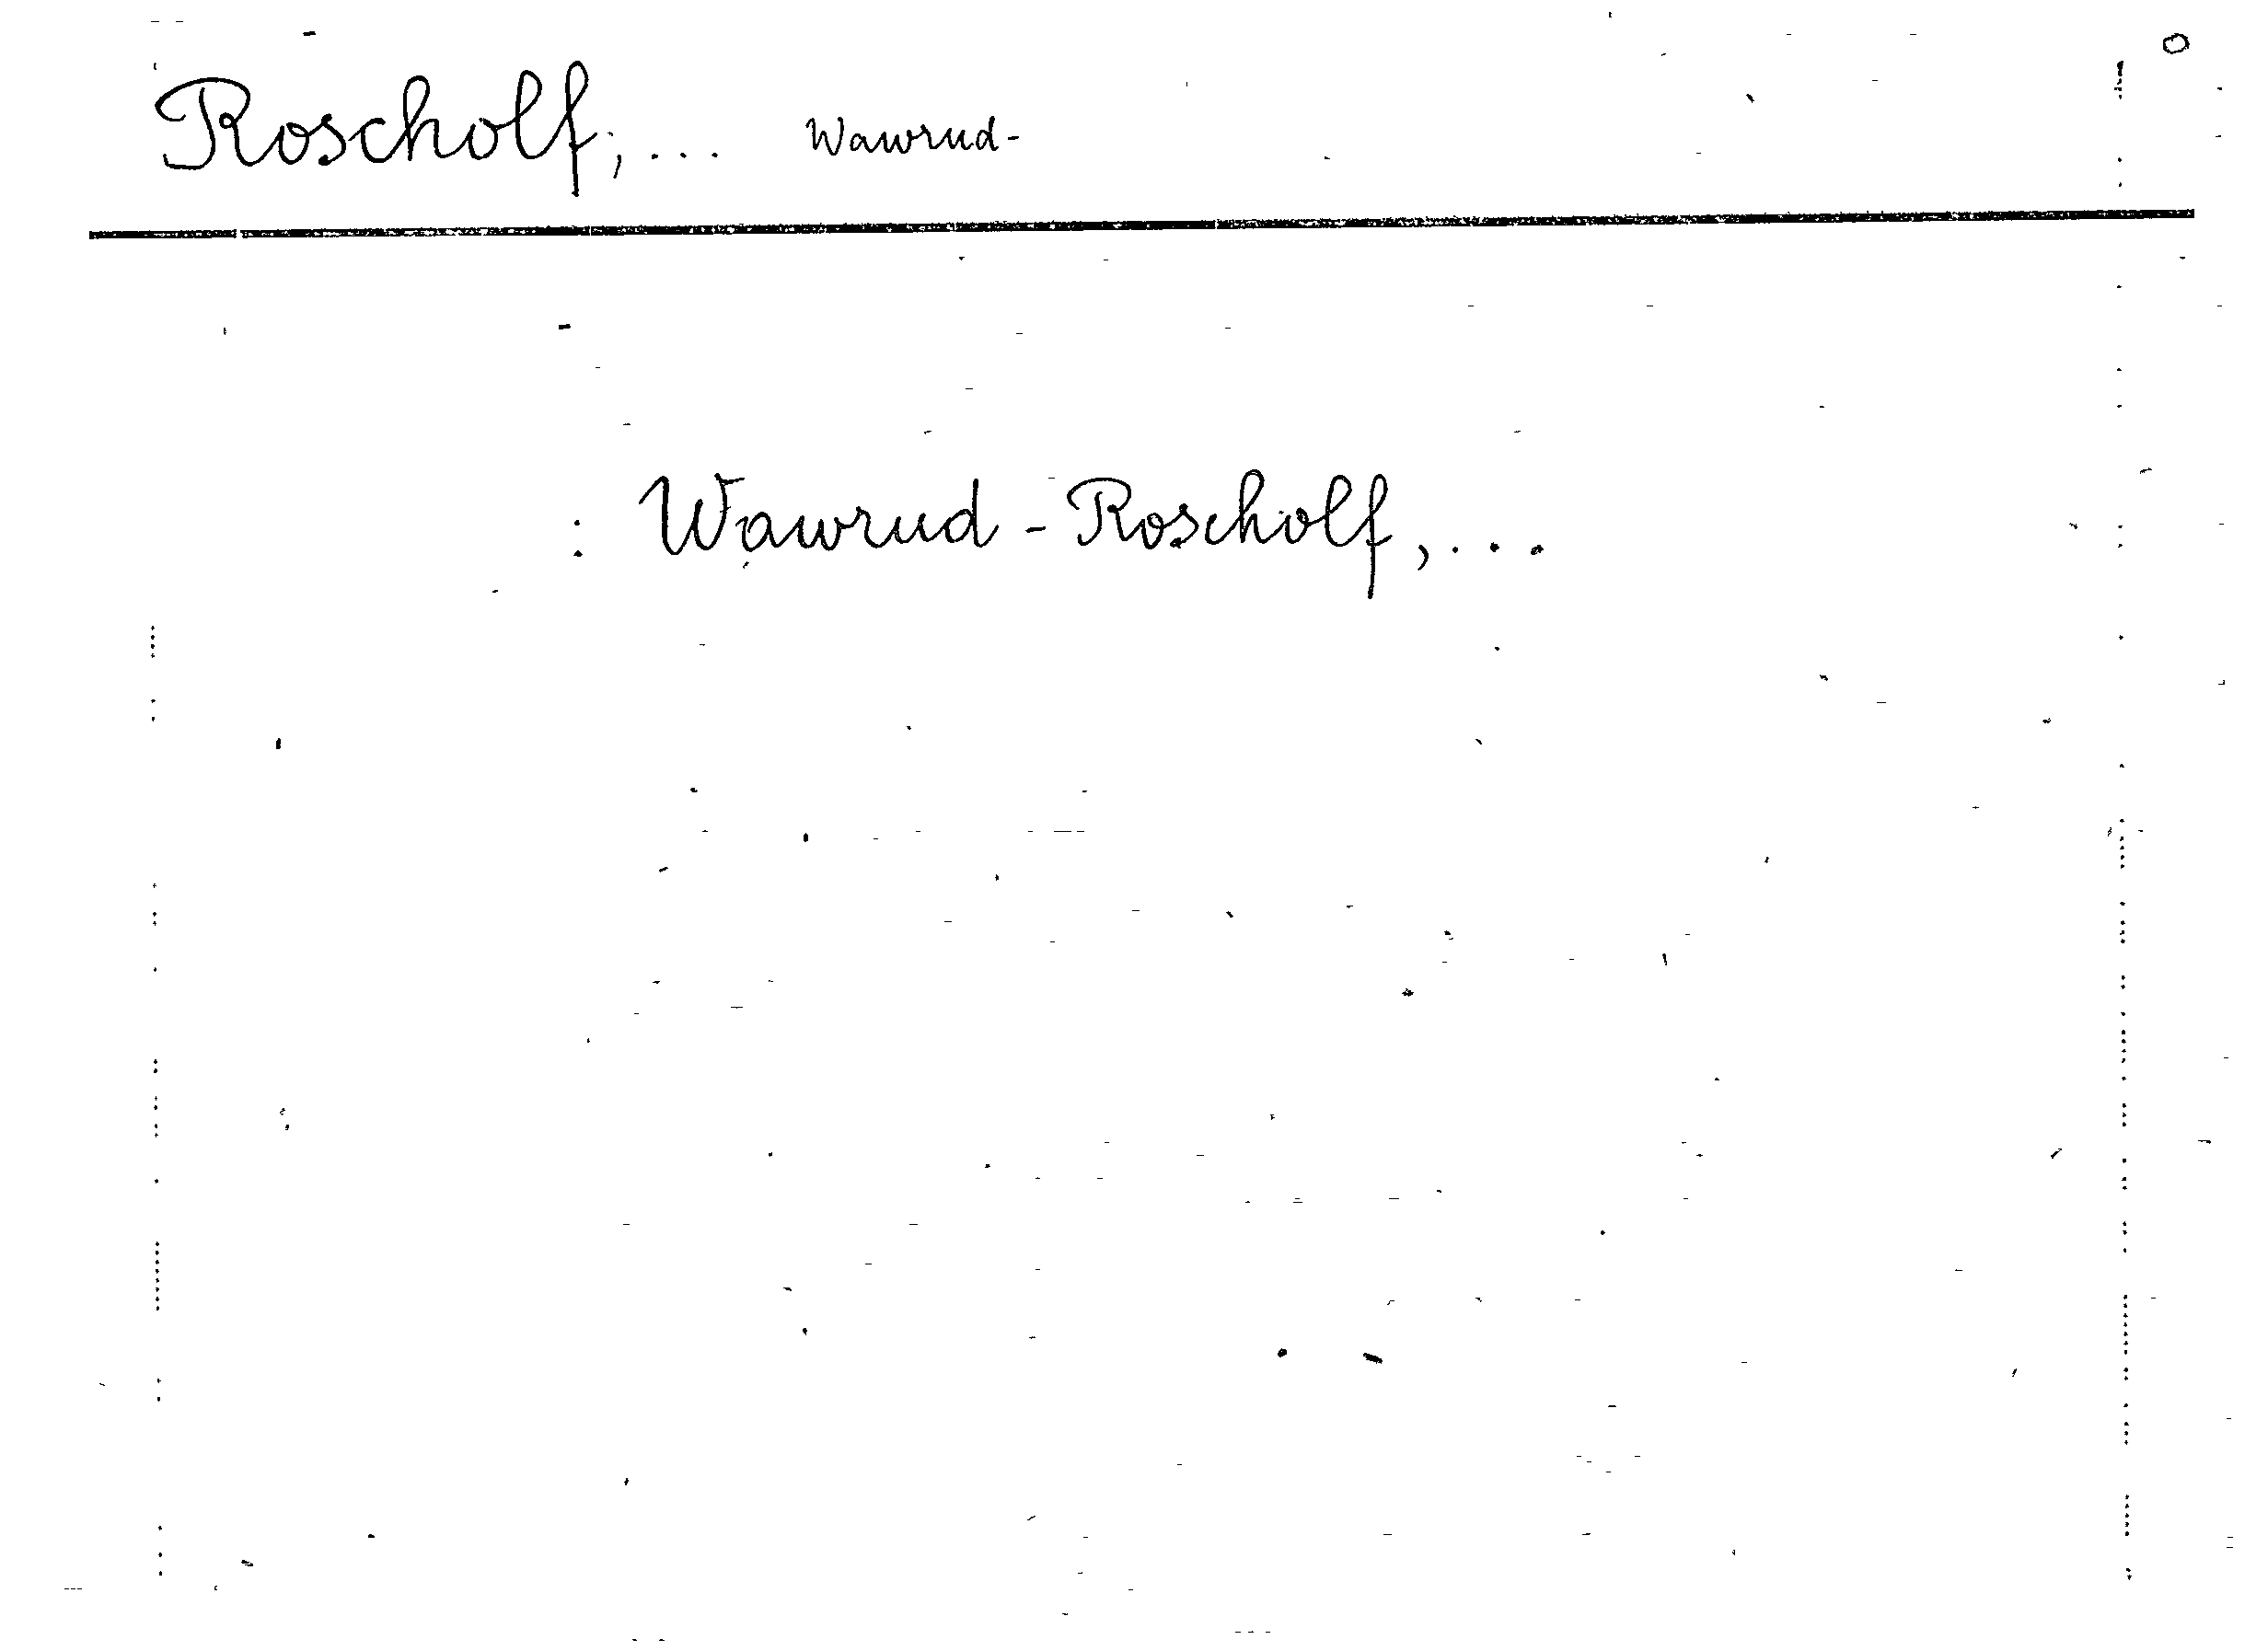 Roscholf, ... Wawrud-
: Wawrud - Roscholf, ...